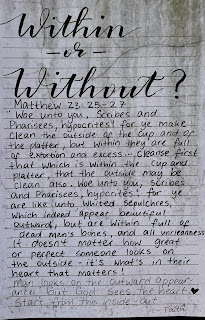 Within
- or -
Without?
Matthew 23:25-27
"Woe unto you, Scribes and
Pharisees, hypocrites! for ye make
clean the outside of the cup and of
the platter, but within they are full
of extortion and excess... Cleanse first
that which is within the cup and
platter, that the outside may be
clean also. Woe unto you, Scribes
and Pharisees, hypocrites! for ye
are like unto whited sepulchres,
which indeed appear beautiful
outward, but are within full of
dead men's bones, and all uncleanness."
It doesn't matter how great
or perfect someone looks on
the outside - it's what's in their
heart that matters!
Man looks on the outward appear-
ance but God sees the heart. ♥
Start from the inside-out.
- Faith